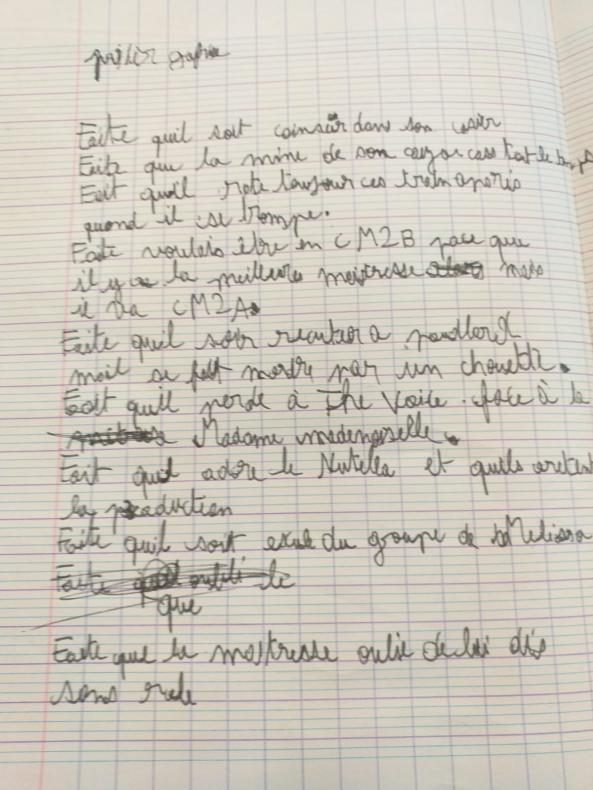 Faite quil soit coinsér dans son casier
Faite que la mine de son crayon cass tout le temps
Fait quil rate toujour ces
quand il se trompe.
Faite voulais être en CM2B pace que
il y a la meilleure maistresse mais
il va CM2A.
Faite quil soit recruter a poudlard
mail se fait mordre par un chouette.
Fait quil perde à The Voice. face à la
Madame mademoiselle.
Fait quil adore le Nutella et quils aretent
la production
Faite quil soit exclu du groupe de Melissa
Faite le
que
Faite que la maitresse oulie de lui dis
sens